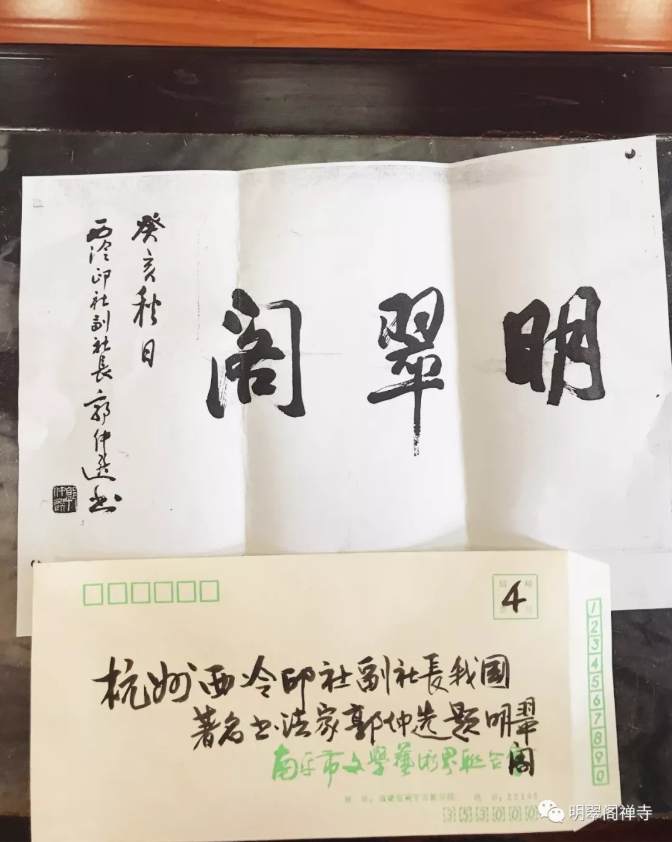 明翠阁
癸亥秋日
西泠印社副社長郭仲选书
4
杭州西冷印社副社長我国
著名书法家郭仲选题明翠
阁
南平市文學藝術界联合会
1
2
3
4
5
6
7
8
9
0
353000
明翠阁禅寺